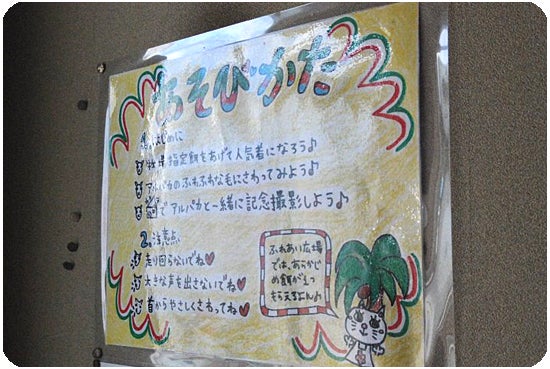 あそびかた
1. はじめに
牧場指定餌をあげて人気者になろう♪
アルパカのふわふわな毛にさわってみよう♪
でアルパカと一緒に記念撮影しよう♪
2. 注意点
走り回らないでね♥
大きな声を出さないでね♥
首からやさしくさわってね♥
ふれあい広場
では、あらかじ
め餌が1つ
もらえるよん♪